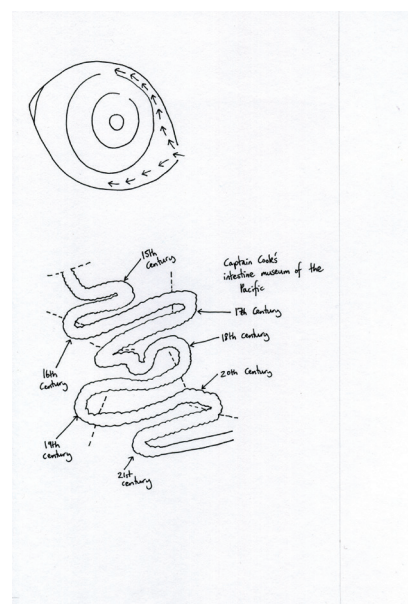 15th
Century
Captain Cook's
intestine museum of the
Pacific
17th Century
18th century
16th
Century
20th Century
19th
century
21st
century